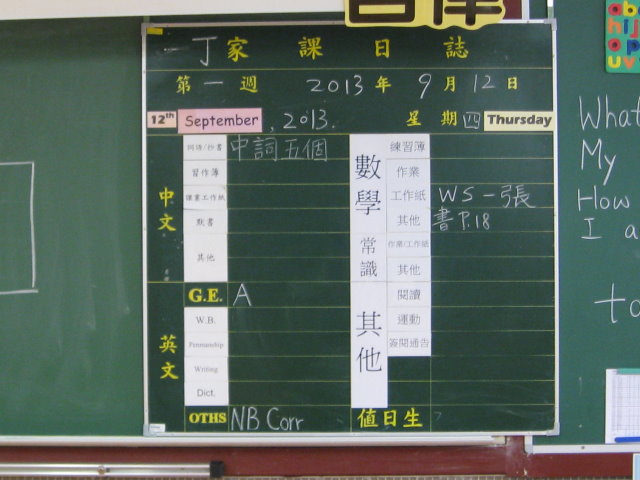 自律
一丁家課日誌
第一週 2013年9月12日
12th September, 2013. 星期四 Thursday
中文
詞語/抄書 中詞五個
習作簿
課業工作紙
默書
其他
英文
G.E. A
W.B.
Penmanship
Writing
Dict.
OTHS NB Corr
數學
練習簿
作業
工作紙 WS一張
其他 書P.18
常識
作業/工作紙
其他
其他
閱讀
運動
簽閱通告
值日生
What
My
How
I a
to